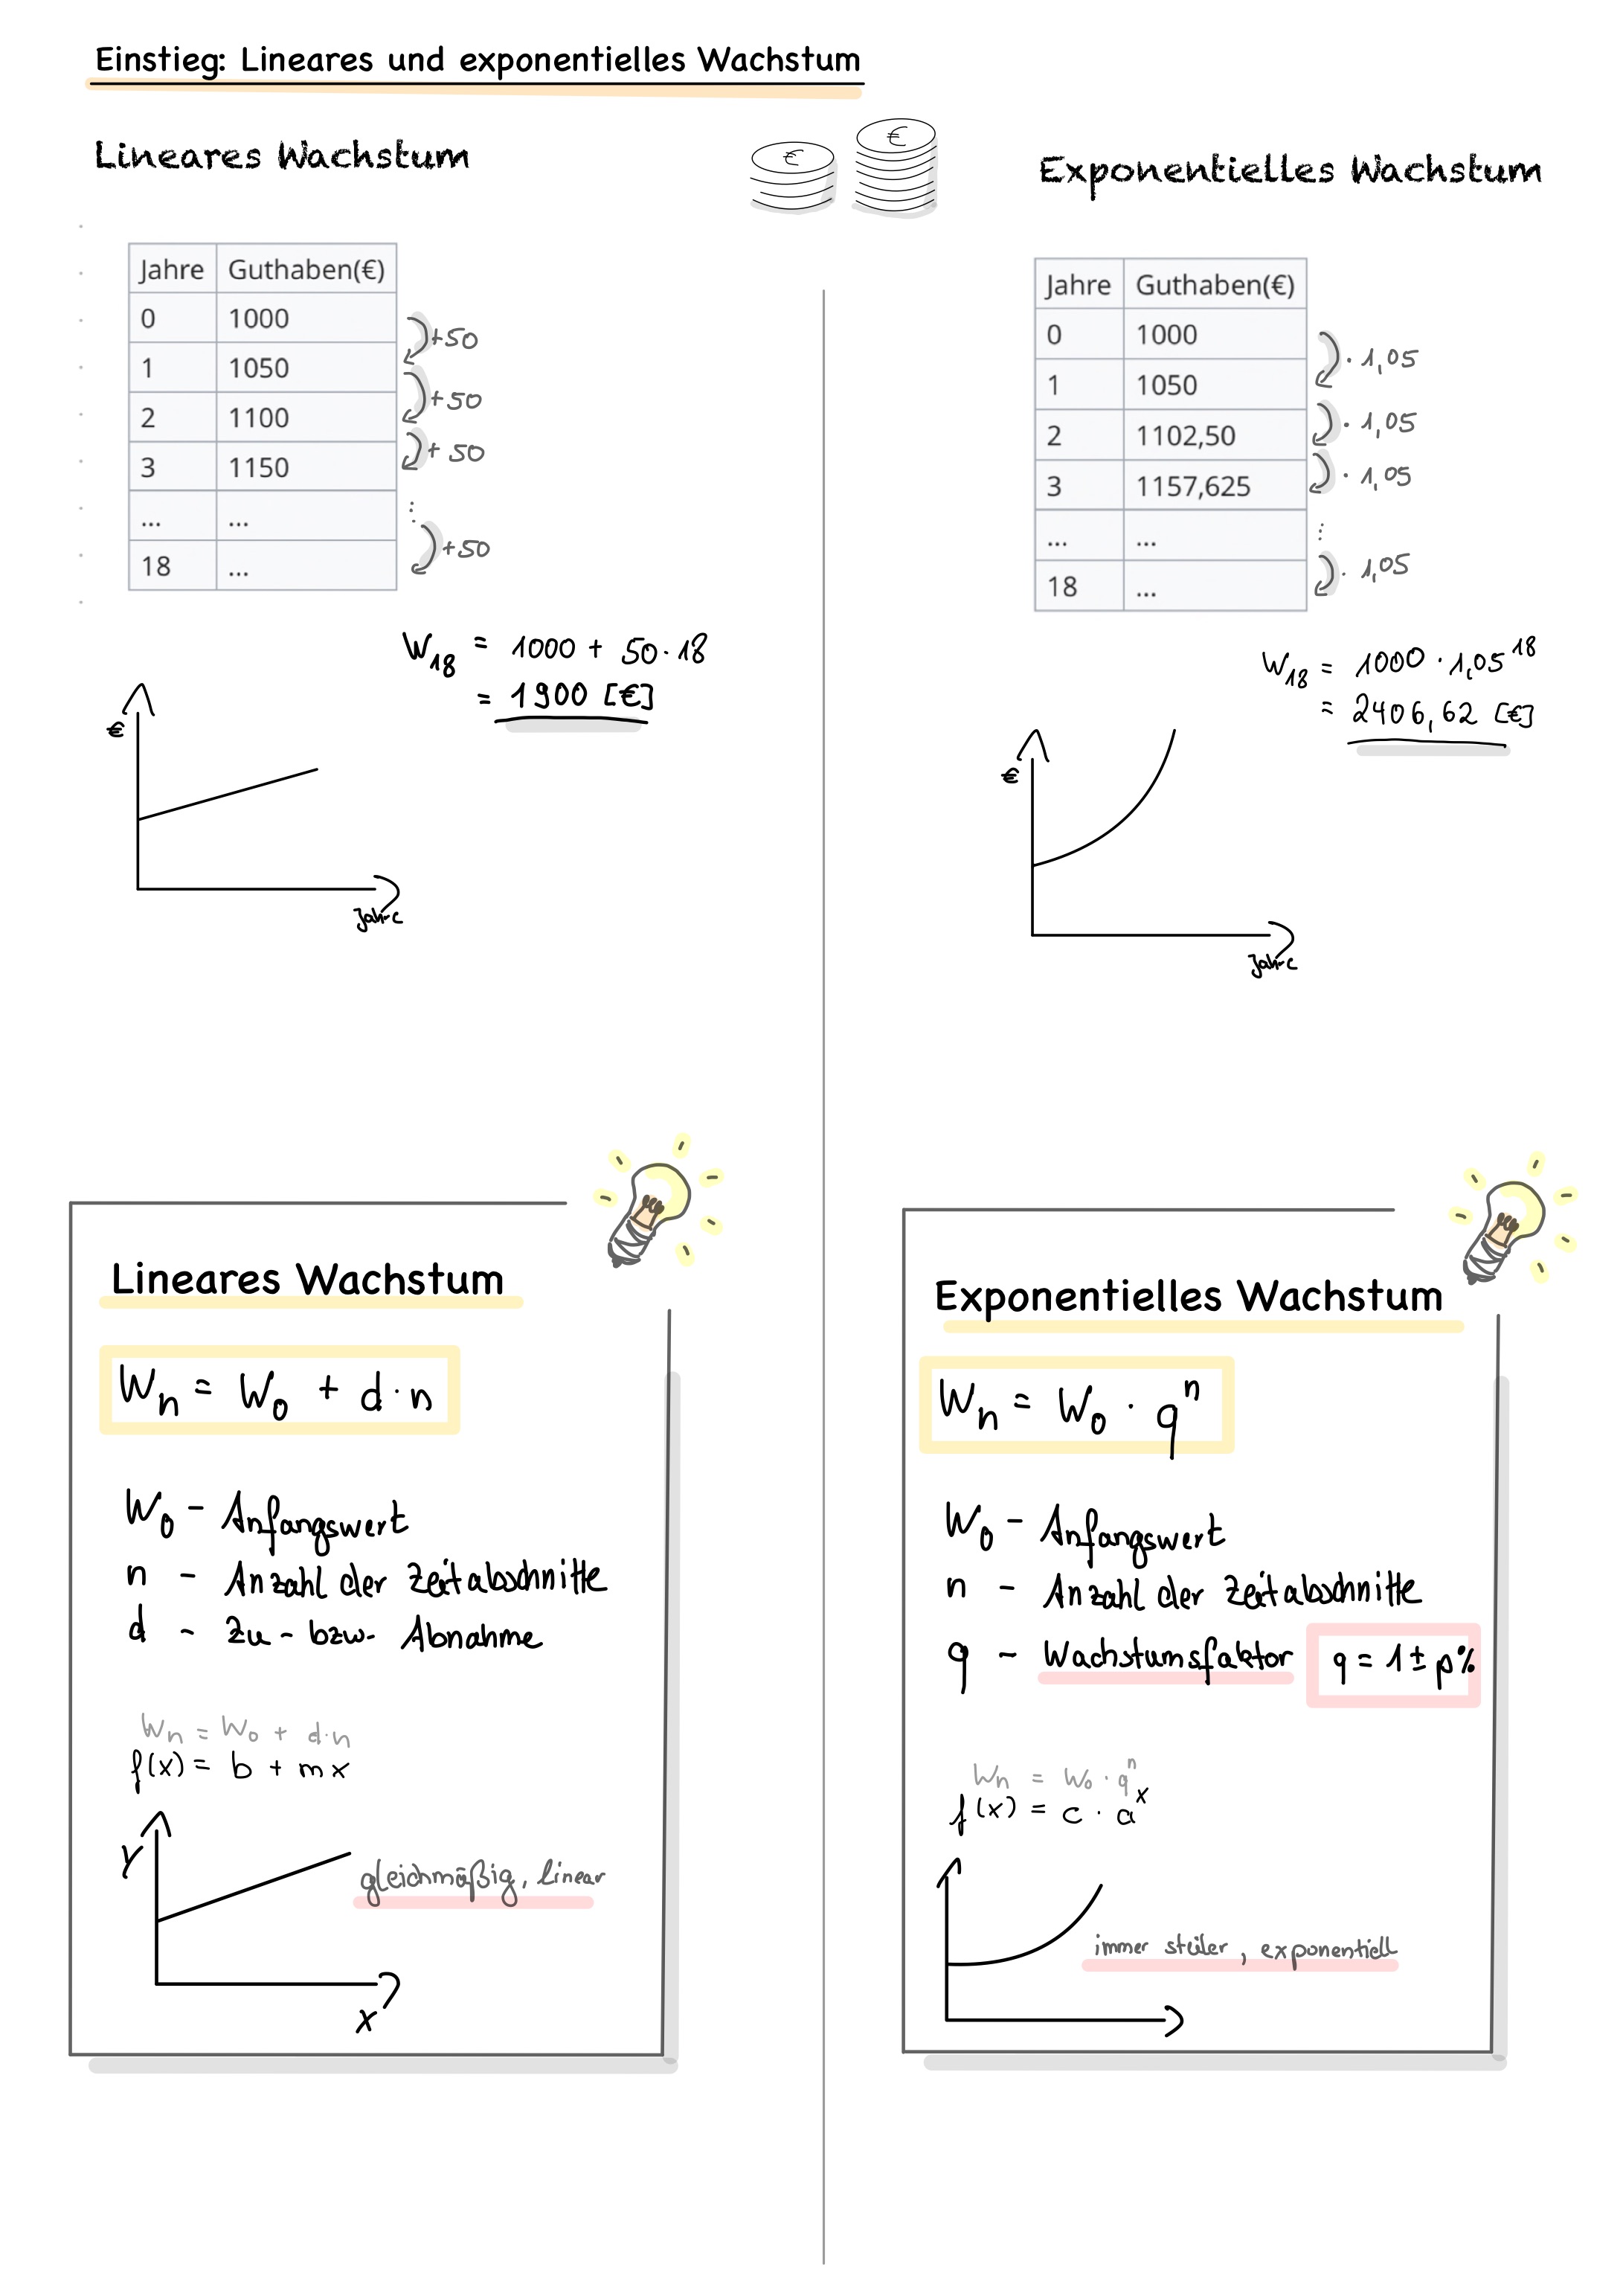 Einstieg: Lineares und exponentielles Wachstum
Lineares Wachstum
€ €
Jahre Guthaben(€)
0 1000
1 1050
2 1100
3 1150
... ...
18 ...
+50
+50
+ 50
⋮
+50
W₁₈ = 1000 + 50·18
= 1900 [€]
€
Jahre
Exponentielles Wachstum
Jahre Guthaben(€)
0 1000
1 1050
2 1102,50
3 1157,625
... ...
18 ...
· 1,05
· 1,05
· 1,05
⋮
· 1,05
W₁₈ = 1000 · 1,05¹⁸
= 2406,62 [€]
€
Jahre
Lineares Wachstum
Wₙ = W₀ + d·n
W₀ - Anfangswert
n - Anzahl der Zeitabschnitte
d - Zu- bzw. Abnahme
Wₙ = W₀ + d·n
f(x) = b + mx
y
gleichmäßig, linear
x
Exponentielles Wachstum
Wₙ = W₀ · qⁿ
W₀ - Anfangswert
n - Anzahl der Zeitabschnitte
q - Wachstumsfaktor q = 1 ± p%
Wₙ = W₀ · qⁿ
f(x) = c · aˣ
immer steiler, exponentiell